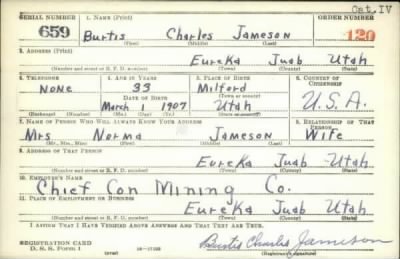 Cat. IV
SERIAL NUMBER 1. NAME (Print) ORDER NUMBER
659 Burtis Charles Jameson 120
(First) (Middle) (Last)
2. ADDRESS (Print)
Eureka Juab Utah
(Number and street or R. F. D. number) (Town) (County) (State)
3. TELEPHONE 4. AGE IN YEARS 5. PLACE OF BIRTH 6. COUNTRY OF CITIZENSHIP
None 33 Milford
DATE OF BIRTH (Town or county)
March 1 1907 Utah U.S.A.
(Exchange) (Number) (Mo.) (Day) (Yr.) (State or country)
7. NAME OF PERSON WHO WILL ALWAYS KNOW YOUR ADDRESS 8. RELATIONSHIP OF THAT PERSON
Mrs Norma Jameson Wife
(Mr., Mrs., Miss) (First) (Middle) (Last)
9. ADDRESS OF THAT PERSON
Eureka Juab Utah
(Number and street or R. F. D. number) (Town) (County) (State)
10. EMPLOYER'S NAME
Chief Con Mining Co.
11. PLACE OF EMPLOYMENT OR BUSINESS
Eureka Juab Utah
(Number and street or R. F. D. number) (Town) (County) (State)
I AFFIRM THAT I HAVE VERIFIED ABOVE ANSWERS AND THAT THEY ARE TRUE.
REGISTRATION CARD
D. S. S. FORM 1
Burtis Charles Jameson
(Registrant's signature)